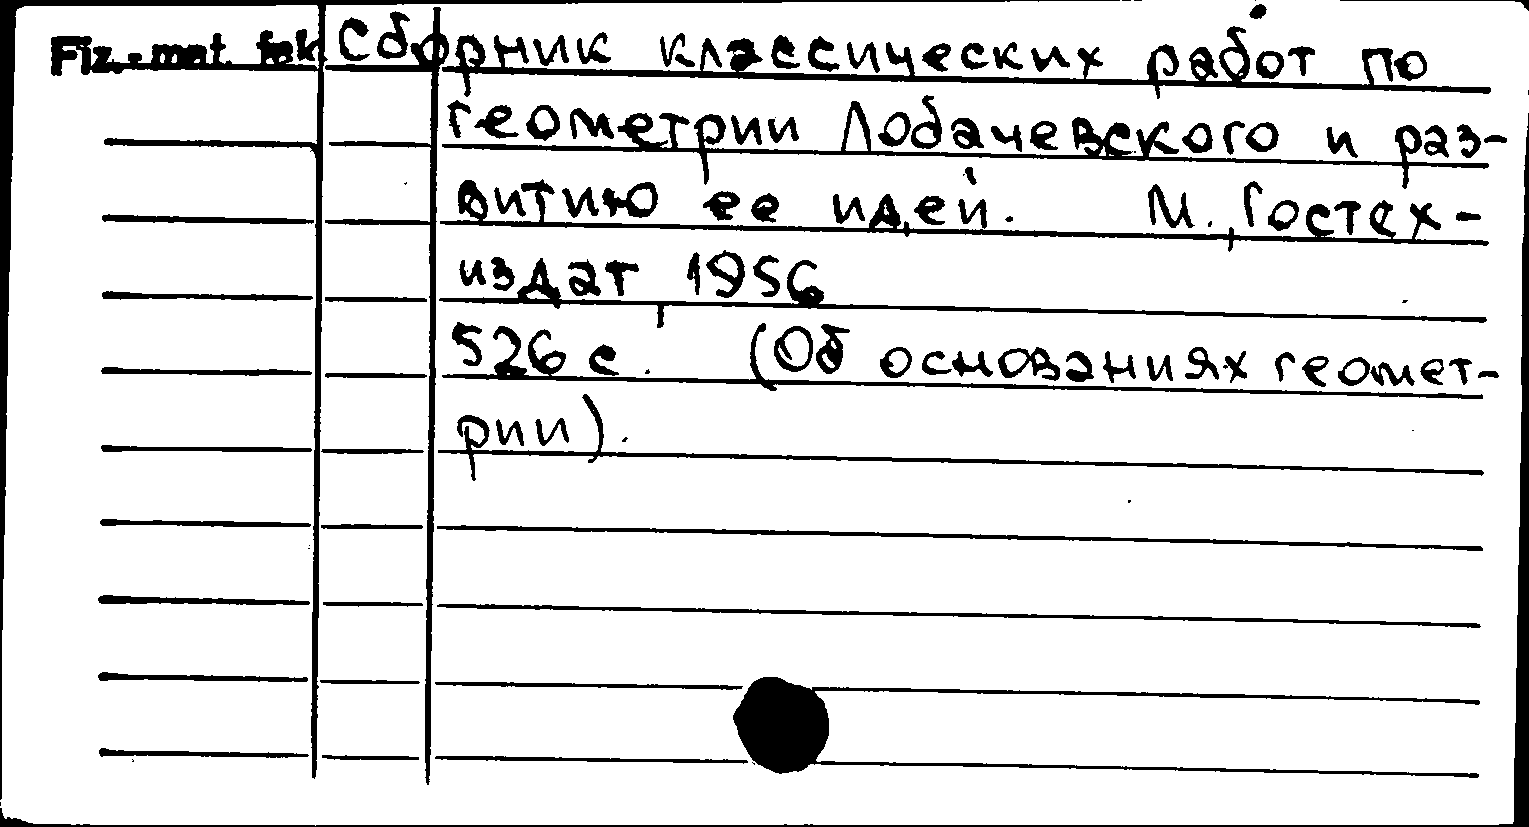 Fiz.-mat. fak. Сборник классических работ по
геометрии Лобачевского и раз-
витию ее идей. М., Гостех-
издат, 1956
526 с. (Об основаниях геомет-
рии).